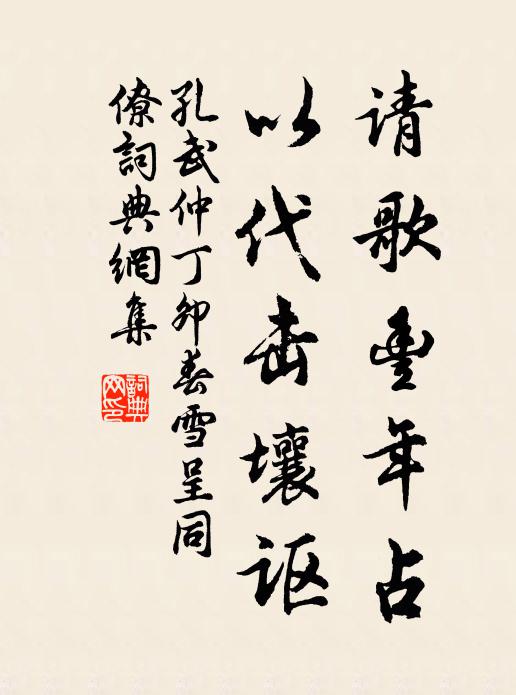 请歌豐年占
以代击壤讴
孔武仲丁卯春雪呈同
僚詞典網集
詞典
网印